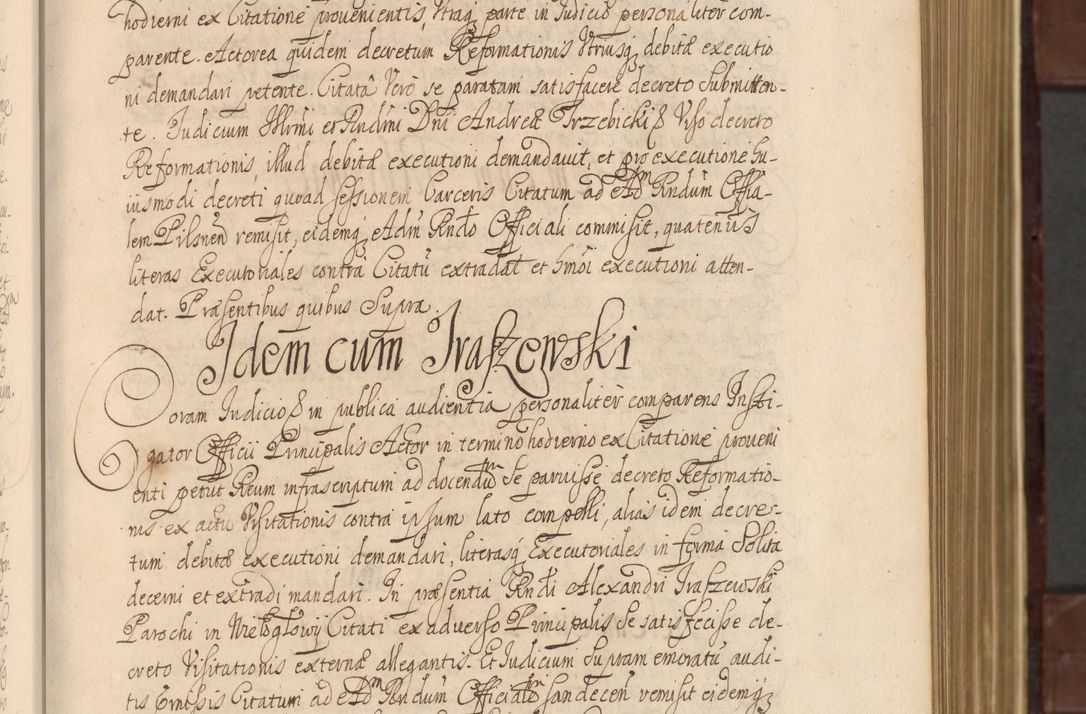 hodierni ex Citatione provenientis, Utraq parte in Judicio personaliter com-
parente. Actorea quidem decretum Reformationis Utriusq debitæ executio
ni demandari petente. Citata Vero se paratam satisfacere decreto Submitten-
te. Judicium Illrmi et Rndmi Dni Andreæ Trzebicki & Viso decreto
Reformationis, illud debitæ executioni demandavit, et pro executione hu-
iusmodi decreti quoad sessionem Carceris Citatum ad Adm Rndum Offia-
lem Pilsnen remisit, eidemq Adm Rndo Officiali commisit, quatenus
literas Executoriales contra Citatu extradat et hmoi executioni atten-
dat. Præsentibus quibus Supra.
Idem cum Iraszewski
Coram Judicio & in publica audientia personaliter comparens Insti-
gator Officii Principalis Actor in termino hodierno ex Citatione proveni
enti petut Reum infrascriptum ad docendum Se paruisse decreto Reformatio-
nis ex actu Visitationis contra ipsum lato compelli, alias idem decre-
tum debitæ executioni demandari, literasq Executoriales in forma Solita
decerni et extradi mandari. In præsentia Rndi Alexandri Iraszewski
Parochi in Wielogłowÿ Citati ex adverso Principalis Se satisfecisse de-
creto Visitationis externæ allegantis. Et Judicium Supram emoratu audi-
tis Citatum ad Adm Rndum Officialem Sandecen remisit eidemq